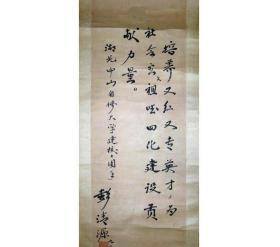 培养又红又专英才为
社会主义祖国四化建设贡
献力量。
湖北中山自修大学建校一周年
彭清源